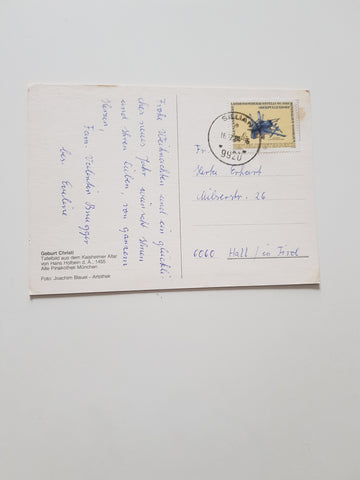 Frohe Weihnachten und ein glückli-
ches neues Jahr wünscht Ihnen
und Ihren Lieben, von ganzem
Herzen,
Fam. Valentin Brugger
bei Eveline
Geburt Christi
Tafelbild aus dem Kaisheimer Altar
von Hans Holbein d. Ä., 1465
Alte Pinakothek München
Foto: Joachim Blauel – Artothek
SILLIAN
9920
Fr.
Herta Erhart
26
6060 Hall / in Tirol